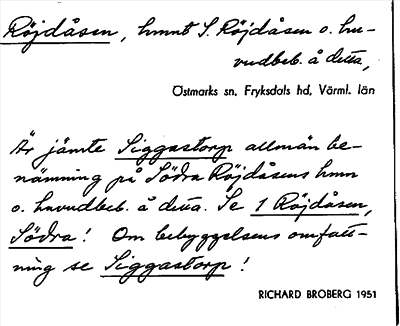 Röjdåsen, hmnt S. Röjdåsen o. hu-
vudbeb. å detta,
Östmarks sn, Fryksdals hd, Värml. län
Är jämte Siggastorp allmän be-
nämning på Södra Röjdåsens hmn
o. huvudbeb. å detta. Se 1 Röjdåsen,
Södra! Om bebyggelsens omfatt-
ning se Siggastorp!
RICHARD BROBERG 1951